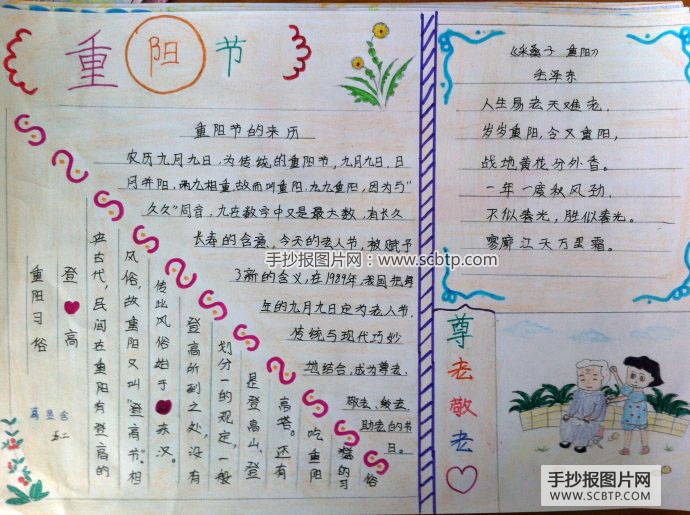 重阳节
重阳节的来历
农历九月九日,为传统的重阳节,九月九日,日
月并阳,两九相重,故而叫重阳,九九重阳,因为与"
久久"同音,九在数字中又是最大数,有长久
长寿的含意,今天的老人节,被赋予
了新的含义,在1989年,我国把每
年的九月九日定为老人节,
传统与现代巧妙
地结合,成为尊老、
敬老、爱老、
助老的节
日。
重阳习俗
登高
在古代,民间在重阳有登高的
风俗,故重阳又叫"登高节"。相
传此风俗始于东汉。
登高所到之处,没有
划分一的规定,一般
是登高山、登
高塔。还有
吃重阳
糕的习
俗
五二
《采桑子 重阳》
毛泽东
人生易老天难老,
岁岁重阳,今又重阳,
战地黄花分外香。
一年一度秋风劲,
不似春光,胜似春光。
寥廓江天万里霜。
尊老敬老
手抄报图片网:www.scbtp.com
手抄报图片网
WWW.SCBTP.COM